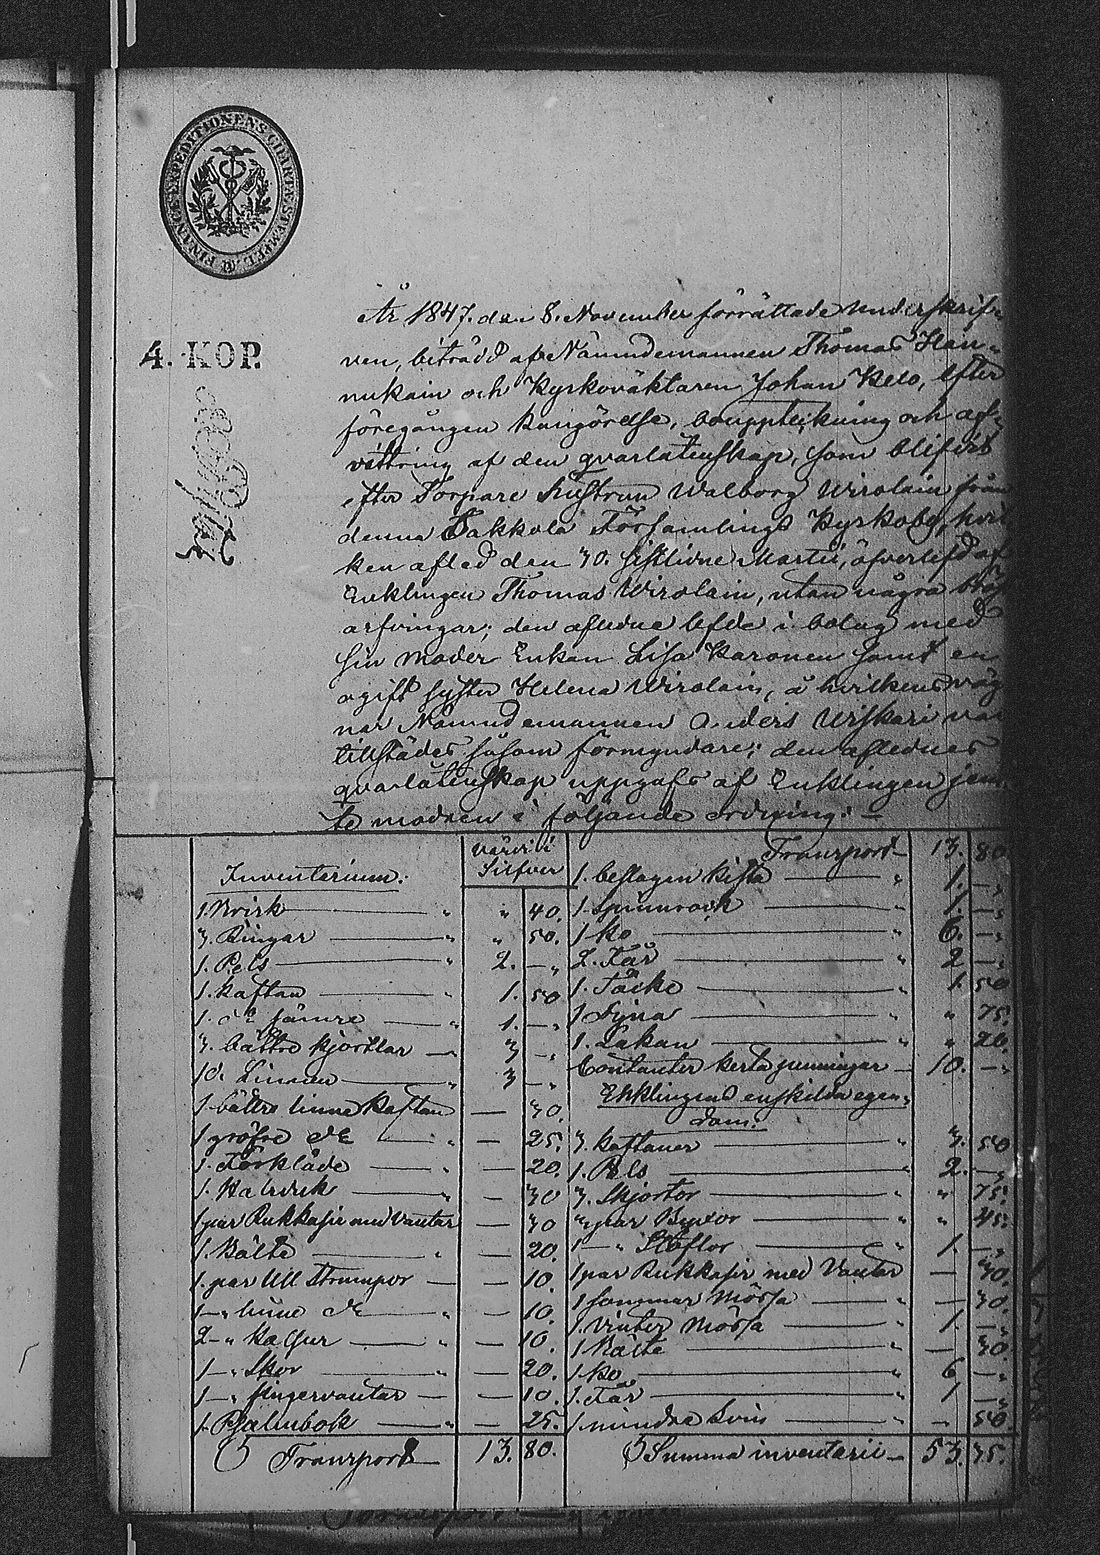 FINANCE EXPEDITIONENS CHARTÆ STEMPEL
4. KOP.
År 1847. den 8. November förrättade underskrif-
ven, biträdd af Nämndemannen Thomas Han-
nukain och Kyrkoväktaren Johan Kelo, efter
föregången kungörelse, bouppteckning och af-
vittring af den qvarlåtenskap, som blifvit
efter Torpare hustrun Walborg Wirolain från
denna Sakkola Församlings Kyrkoby, hvil
ken afled den 30. sistlidne Martii, öfverlefd af
Enklingen Thomas Wirolain, utan några bröst
arfvingar; den aflidne lefde i bolag med
sin moder Enkan Lisa Karonen samt en
ogift syster Helena Wirolain, å hvilkens väg
nar Nämndemannen Anders Urskari var
tillstädes såsom förmyndare; den aflidnes
qvarlåtenskap uppgafs af Enklingen jem
te modren i följande ordning:
Inventerium: värde i Silfver
1. " " 40.
3. Ringar " " 50.
1. Pels " 2. — "
1. kaftan " 1. 50
1. dº sämre " 1. — "
3. bättre kjortlar — 3 — "
10. Linnen " 3 — "
1. bättre linne kaftan — 30.
1 gröfre dº " — 25.
1. Förkläde " — 20.
1. " — 30
1 par Rukkasir med Vantar — 30
1. Bälte " — 20.
1. par Ull Strumpor — — 10.
1 — " linne dº " — 10.
2 — " " — 10.
1 — " Skor — 20.
1 — " fingervantar — — 10.
1. Psalmbok " — 25.
Transport 13. 80.
Transport 13. 80.
1. beslagen kista " 1. — "
1. Spinnrock " 1. — "
1 ko " 6. — "
2. Får " 2 — "
1. Täcke " 1. 50
1 Dyna " " 75.
1. Lakan " " 20.
Contanter penningar — 10. — "
Enklingens enskilda egen-
dom:
3. kaftaner " 3. 50
1. Pels " 2. — "
3. Skjortor " " 75.
3 par Byxor " " 45.
1 — " Stöflor " 1. — "
1 par Rukkasir med Vantar — 30.
1 sommar Mössa " — 30.
1. Vinter Mössa " 1. — "
1 Bälte " — 30.
1 ko " 6. — "
1. Får " 1 — "
1. mindre Svin " — 50.
Summa inventarii — 53. 75.